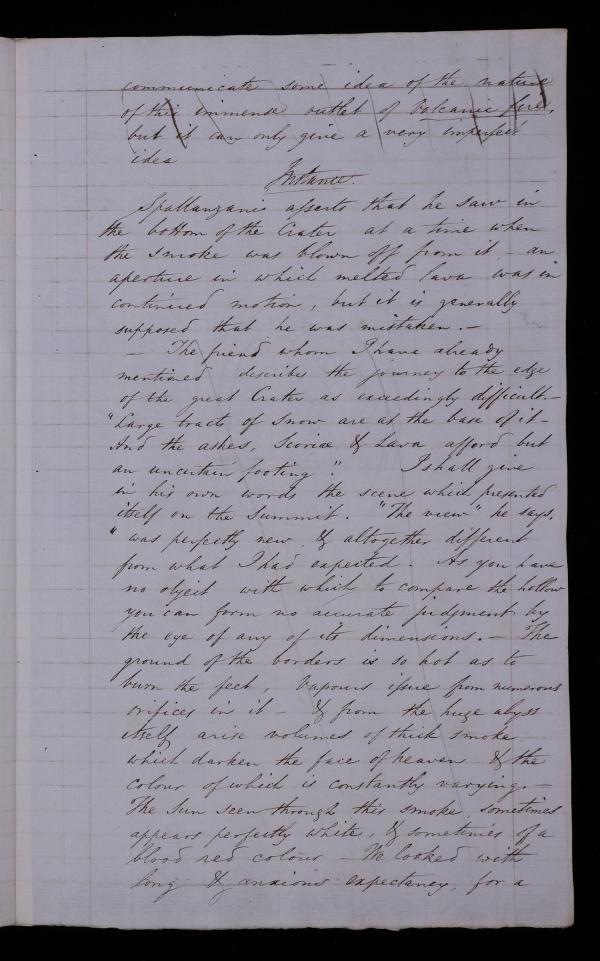 communicate some idea of the nature
of this immense outlet of Volcanic fire,
but it can only give a very imperfect
idea
Instance.
Spallanzani asserts that he saw in
the bottom of the Crater at a time when
the smoke was blown off from it – an
aperture in which melted lava was in
continued motion, but it is generally
supposed that he was mistaken. –
– The friend whom I have already
mentioned describes the journey to the edge
of the great Crater as exceedingly difficult –
"Large tracts of Snow are at the base of it –
And the ashes, Scoriæ & Lava afford but
an uncertain footing". I shall give
in his own words the scene which presented
itself on the Summit. "The view" he says,
"was perfectly new & altogether different
from what I had expected. As you have
no object with which to compare the hollow
you can form no accurate judgment by
the eye of any of its dimensions. – The
ground of the borders is so hot as to
burn the feet, Vapours issue from numerous
orifices in it – & from the huge abyss
itself arise volumes of thick smoke
which darken the face of heaven & the
colour of which is constantly varying. –
The Sun seen through this smoke, sometimes
appears perfectly white, & sometimes of a
blood red colour – We looked with
long & anxious expectancy, for a